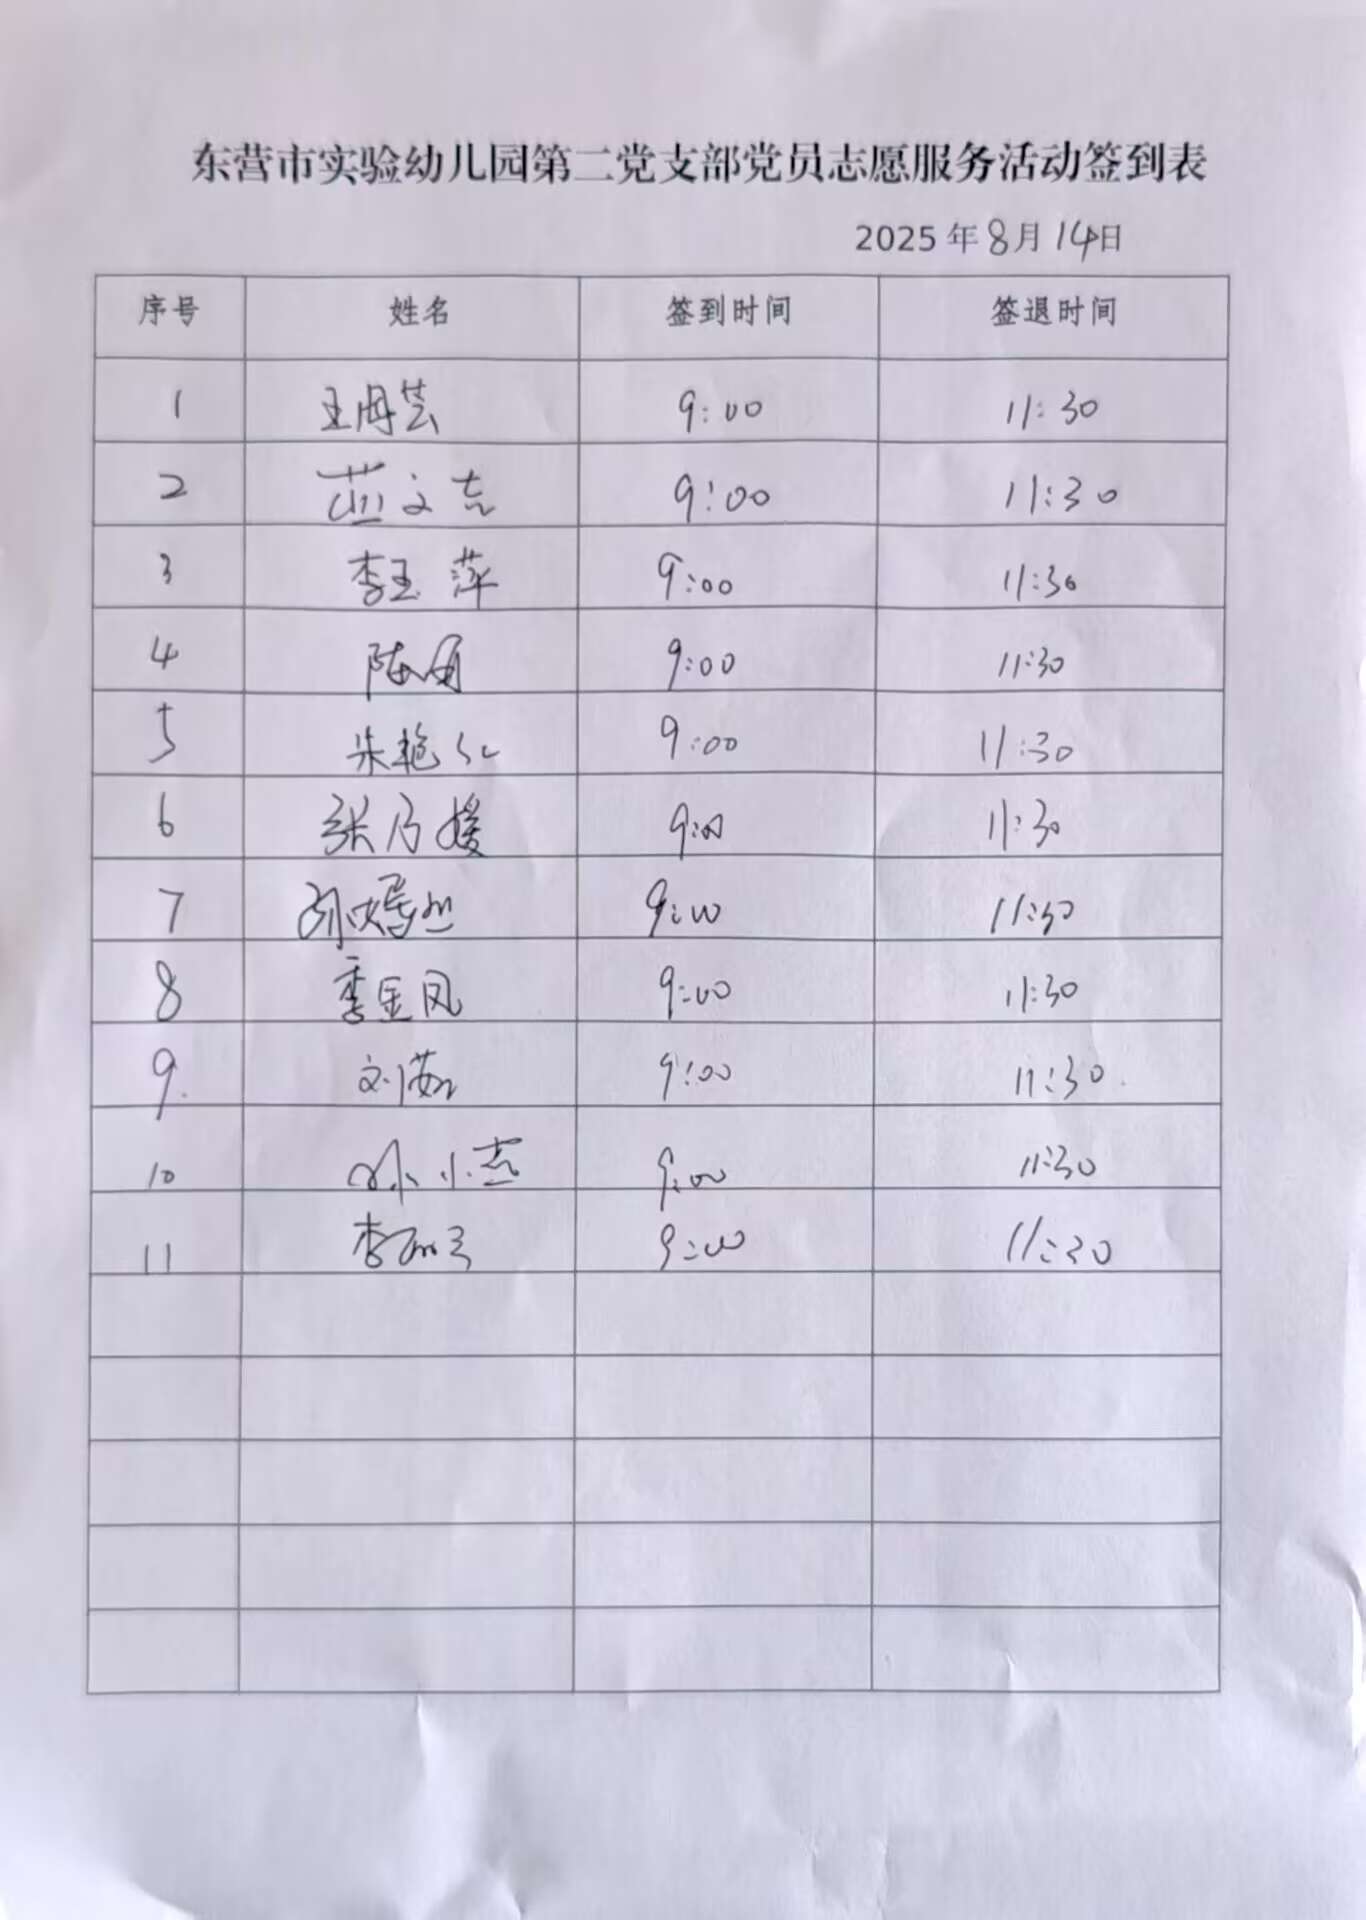 东营市实验幼儿园第二党支部党员志愿服务活动签到表
2025 年 8 月 14 日
序号 姓名 签到时间 签退时间
1 王海芸 9:00 11:30
2 文志 9:00 11:30
3 李玉萍 9:00 11:30
4 陈 9:00 11:30
5 朱艳红 9:00 11:30
6 张乃媛 9:00 11:30
7 9:00 11:30
8 季金凤 9:00 11:30
9. 刘茹 9:00 11:30
10 小 9:00 11:30
11 李 9:00 11:30